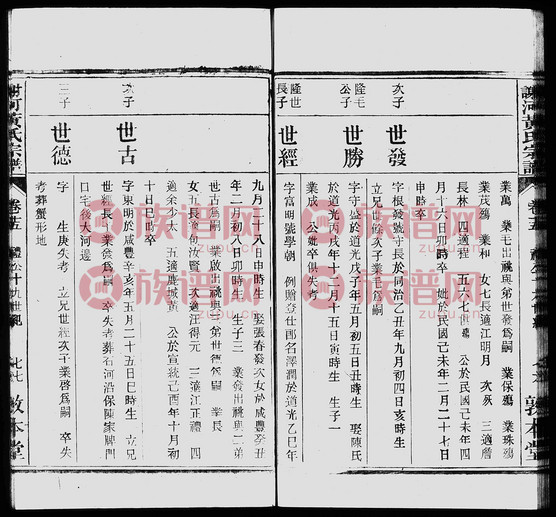 謝河黃氏宗譜
業萬 業毛出祧與弟世發爲嗣 業保鴉 業珠鴉
業茂鴉 業和 女七長適江明月 次殤 三適詹
長林 四適程 五六七世殤 公於民國己未年四
月十六日卯時卒 妣於民國己未年二月二十七日
申時卒
次子
世發
字根發號守長於同治乙丑年九月初四日亥時生
立兄世勝次子業毛爲嗣
隆毛公子
世勝
字守盛於道光戊子年五月初五日丑時生 娶陳氏
於道光丙戌年十二月十五日寅時生 生子一
業成 公妣卒俱失考
隆世長子
世經
字富明號學朝 例贈登仕郎名澤潤於道光乙巳年
九月二十八日申時生 娶張春發次女於咸豐癸丑
年二月初八日卯時生 生子三 業發出祧與二弟
世古爲嗣 業啟出祧與三弟世德爲嗣 世長
女五長適向汝賢 次適汪得元 三適江正禮 四
適余少太 五適鹿城黃 公於宣統己酉年十月初
十日巳時卒
次子
世古
字東明於咸豐辛亥年五月二十五日巳時生 立兄
世經長子業發爲嗣 卒失考葬石河沿保陳家牌門
口宅後大河邊
三子
世德
字 生庚失考 立兄世經次子業啓爲嗣 卒失
考葬蟹形地
謝河黃氏宗譜
卷廿五
禮公十九世紀
敦本堂